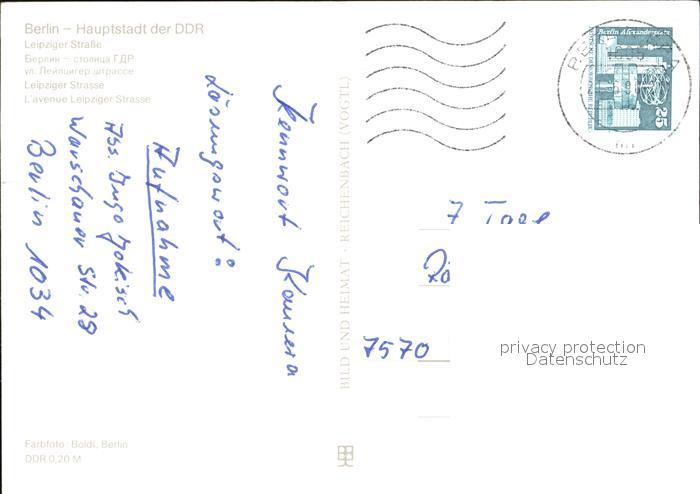 Berlin – Hauptstadt der DDR
Leipziger Straße
Берлин – столица ГДР
ул. Лейпцигер штрассе
Leipziger Strasse
L'avenue Leipziger Strasse
Kennwort Kamera
Lösungswort:
Aufnahme
Abs. Ingo
Warschauer Str. 28
Berlin 1034
BILD UND HEIMAT · REICHENBACH (VOGTL)
Berlin Alexanderplatz
25
7
7570
privacy protection
Datenschutz
Farbfoto: Boldt, Berlin
DDR 0,20 M